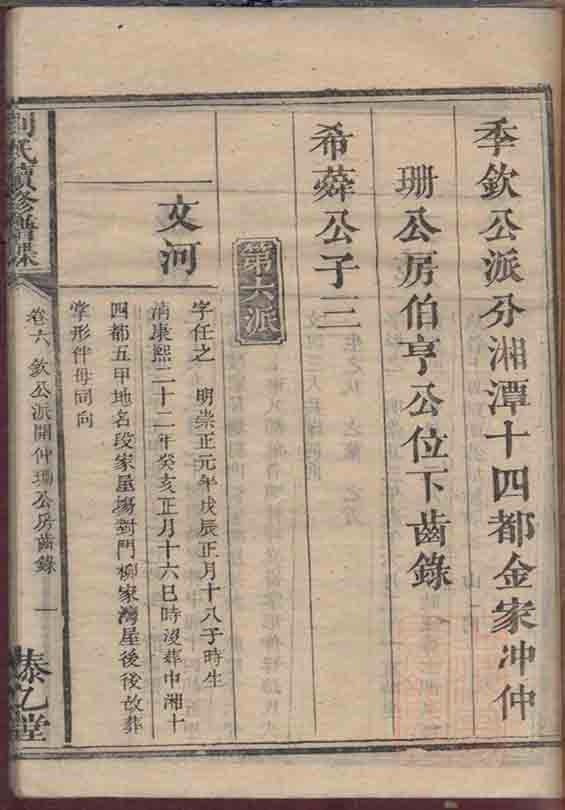 季欽公派分湘潭十四都金家冲仲
珊公房伯亨公位下齒錄
希薜公子三
第六派
文河
字任之 明崇正元年戊辰正月十八子時生
淸康熙二十二年癸亥正月十六巳時歿葬中湘十
四都五甲地名段家屋塲對門柳家灣屋後後故葬
掌形伴母同向
劉氏續修譜牒
卷六 欽公派開仲珊公房齒錄 一
泰乙堂